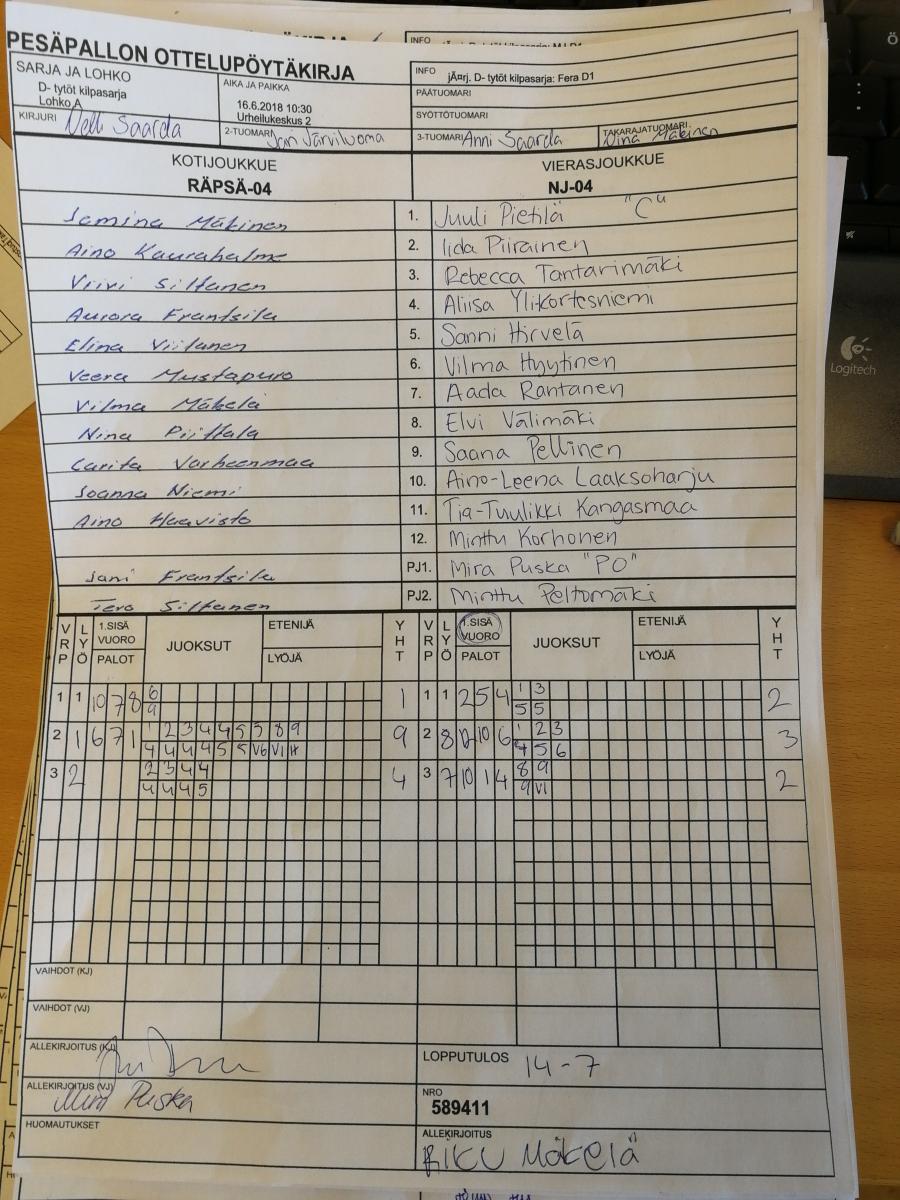 PESÄPALLON OTTELUPÖYTÄKIRJA
SARJA JA LOHKO
D- tytöt kilpasarja
Lohko A
AIKA JA PAIKKA
16.6.2018 10:30
Urheilukeskus 2
INFO jÄ¤rj. D- tytöt kilpasarja: Fera D1
PÄÄTUOMARI
SYÖTTÖTUOMARI
KIRJURI Nelli Saarela
2-TUOMARI Jari Järviluoma
3-TUOMARI Anni Saarela
TAKARAJATUOMARI Nina Mäkinen
KOTIJOUKKUE VIERASJOUKKUE
RÄPSÄ-04 NJ-04
Jemina Mäkinen 1. Juuli Pietilä "C"
Aino Kauraholma 2. Iida Piirainen
Viivi Siltanen 3. Rebecca Tantarimäki
Aurora Frantsila 4. Aliisa Ylikortesniemi
Elina Viitanen 5. Sanni Hirvelä
Veera Mustapuro 6. Vilma Hyytinen
Vilma Mäkelä 7. Aada Rantanen
Nina Piittala 8. Elvi Välimäki
Carita Varheenmaa 9. Saana Pellinen
Joanna Niemi 10. Aino-Leena Laaksoharju
Aino Haavisto 11. Tia-Tuulikki Kangasmaa
12. Minttu Korhonen
Jani Frantsila PJ1. Mira Puska "PO"
Tero Siltanen PJ2. Minttu Peltomäki
VRP LYÖ 1.SISÄ VUORO PALOT JUOKSUT ETENIJÄ LYÖJÄ YHT VRP LYÖ 1.SISÄ VUORO PALOT JUOKSUT ETENIJÄ LYÖJÄ YHT
1 1 10 7 8 6 1 1 1 2 5 4 1 3 2
9 5 5
2 1 6 7 1 1 2 3 4 4 5 5 8 9 9 2 8 12 10 6 1 2 3 3
4 4 4 4 5 5 V6 V1 H 4 5 6
3 2 2 3 4 4 4 3 7 10 1 4 8 9 2
4 4 4 5 9 V1
VAIHDOT (KJ)
VAIHDOT (VJ)
ALLEKIRJOITUS (KJ)
LOPPUTULOS 14-7
ALLEKIRJOITUS (VJ) Mira Puska
NRO
589411
HUOMAUTUKSET
ALLEKIRJOITUS
RIKU Mäkelä
Logitech